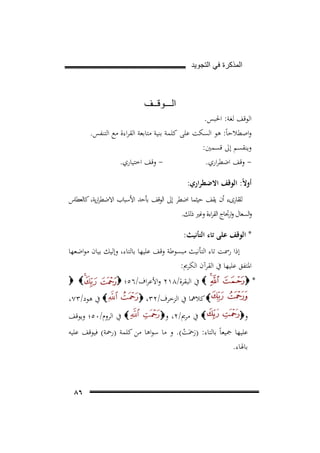 المذكرة في التجويد
الـــوقـــف
الوقف لغة: الحبس.
واصطلاحاً: هو السكت على كلمة بنية متابعة القراءة مع التنفس.
وينقسم إلى قسمين:
- وقف اضطراري. - وقف اختياري.
أولاً: الوقف الاضطراري:
للقارئ، أن يقف حيثما اضطر إلى الوقف بأحد الأسباب الاضطرارية، كالعطاس
والسعال وارتجاج القراءة وغير ذلك.
* الوقف على تاء التأنيث:
إذا رسمت تاء التأنيث مبسوطة وقف عليها بالتاء، وإليك بيان مواضعها
المتفق عليها في القرآن الكريم:
* ﴿رَحْمَتَ ٱللَّهِ﴾ في البقرة/٢١٨ والأعراف/٥٦، ﴿رَحْمَتِ رَبِّكَ﴾ ﴿
وَرَحْمَتُ رَبِّكَ﴾ كلاهما في الزخرف/٣٢، ﴿رَحْمَتُ ٱللَّهِ﴾ في هود/٧٣،
و﴿رَحْمَتِ رَبِّكَ﴾ في مريم/٢، و﴿رَحْمَتِ ٱللَّهِ﴾ في الروم/٥٠ ويوقف
عليها جميعاً بالتاء: (رَحْمَتْ). و ما سواها من كلمة (رحمة) فيوقف عليه
بالهاء.
٨٦